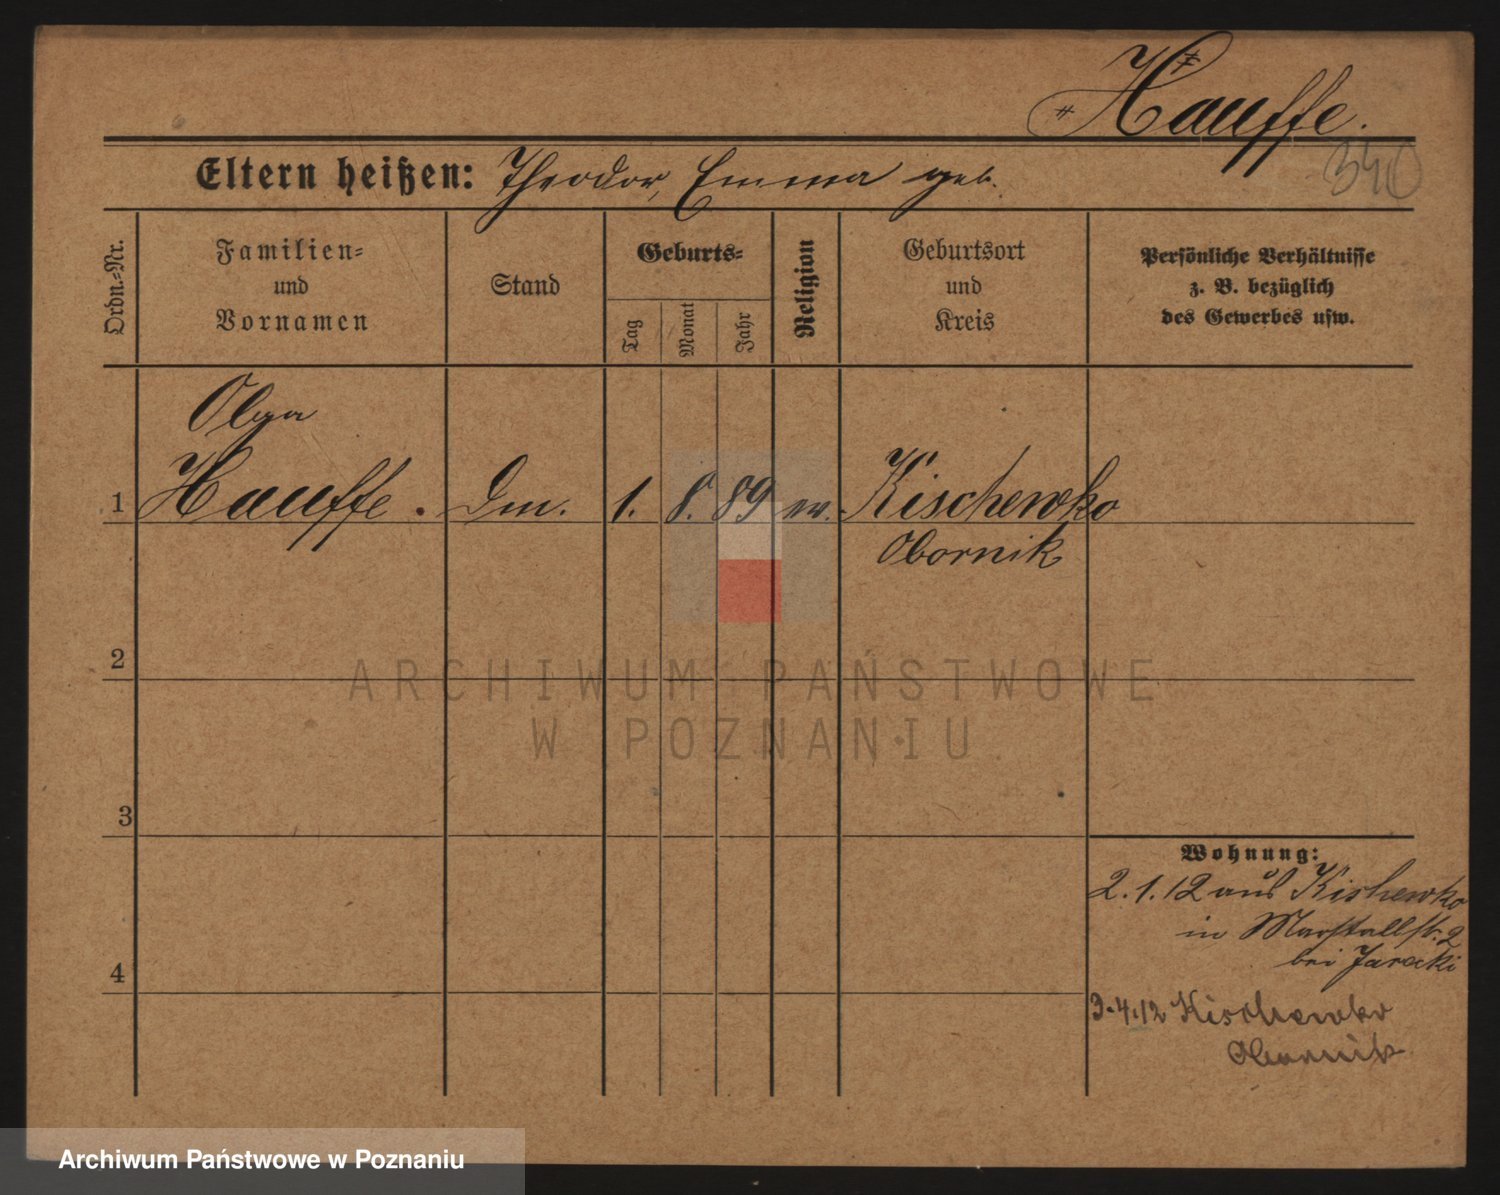 Hauffe.
340
Eltern heißen: Theodor, Emma geb.
Ordn.-Nr.
Familien-
und
Vornamen
Stand
Geburts-
Tag
Monat
Jahr
Religion
Geburtsort
und
Kreis
Persönliche Verhältnisse
z. B. bezüglich
des Gewerbes usw.
Olga
1 Hauffe. 1. 8. 89 ev. Kischewko
Obornik
2
ARCHIWUM PAŃSTWOWE
W POZNANIU
3
Wohnung:
2.1.12 aus Kischewko
in Marstallstr. 2
bei Jarecki
4
3.4.12 Kischewko
Obornik
Archiwum Państwowe w Poznaniu